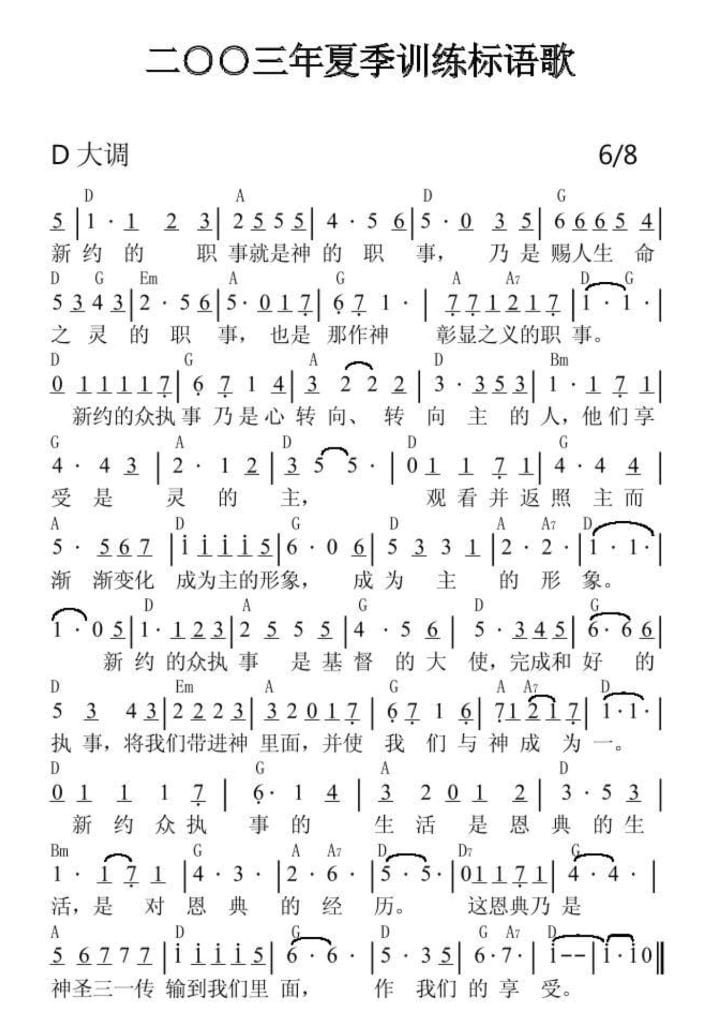 二〇〇三年夏季训练标语歌
D 大调 6/8
D A D G
5 | 1 · 1 2 3 | 2 5 5 5 | 4 · 5 6 | 5 · 0 3 5 | 6 6 6 5 4 |
新 约 的 职 事就是神 的 职 事， 乃 是 赐人生 命
D G Em A G A A7 D G
5 3 4 3 | 2 · 5 6 | 5 · 0 1 7 | 6 7 1 · | 7 7 1 2 1 7 | 1 · 1 · |
之 灵 的 职 事，也是 那作神 彰显之义的职 事。
D G A D Bm
0 1 1 1 1 7 | 6 7 1 4 | 3 2 2 2 | 3 · 3 5 3 | 1 · 1 7 1 |
新约的众执 事 乃 是 心 转 向、 转 向 主 的 人，他 们 享
G A D D G
4 · 4 3 | 2 · 1 2 | 3 5 5 · | 0 1 1 7 1 | 4 · 4 4 |
受 是 灵 的 主， 观 看 并 返 照 主 而
A D G D A A7 D
5 · 5 6 7 | i i i i 5 | 6 · 0 6 | 5 3 3 1 | 2 · 2 · | 1 · 1 · |
渐 渐变化 成为主的形象， 成 为 主 的 形 象。
D A G D G
1 · 0 5 | 1 · 1 2 3 | 2 5 5 5 | 4 · 5 6 | 5 · 3 4 5 | 6 · 6 6 |
新 约 的众执 事 是 基 督 的 大 使，完成和 好 的
D Em A G A A7 D
5 3 4 3 | 2 2 2 3 | 3 2 0 1 7 | 6 7 1 6 | 7 1 2 1 7 | 1 · 1 · |
执 事，将我们带进神 里面，并使 我 们 与 神 成 为 一。
D G A D
0 1 1 1 7 | 6 · 1 4 | 3 2 0 1 2 | 3 · 5 3 |
新 约 众 执 事 的 生 活 是 恩 典 的 生
Bm G A A7 D D7 G
1 · 1 7 1 | 4 · 3 · | 2 · 6 · | 5 · 5 · | 0 1 1 7 1 | 4 · 4 · |
活，是 对 恩 典 的 经 历。 这恩典乃 是
A D G D G A7 D
5 6 7 7 7 | i i i i 5 | 6 · 6 · | 5 · 3 5 | 6 · 7 · | i - - | i · i 0 ‖
神圣三一传 输到我们里 面， 作 我们 的 享 受。